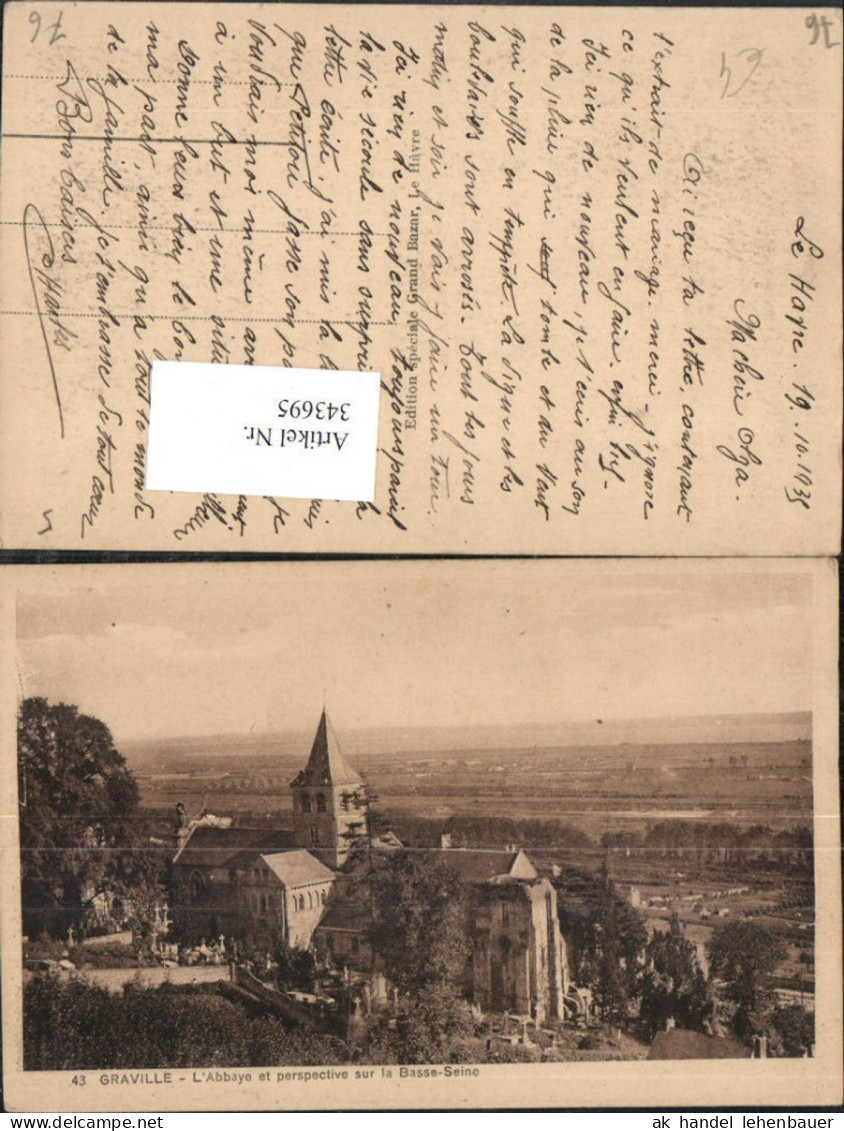 76
76
Le Havre. 19.10.1935
Ma chère Olga.
Ai reçu ta lettre, contenant
l'extrait de mariage. merci - j'ignore
ce qu'ils veulent en faire. enfin
J'ai rien de nouveau, je t'écris au son
de la pluie qui tombe et du vent
qui souffle en tempête. La digue et les
boulevards sont arrosés. Tout les jours
matin et soir je vais y faire un tour.
J'ai rien de nouveau, toujours pareil
la vie s'écoule sans surprise
lettre écrite, j'ai mis la
que Petitou fasse son
Voudrais moi même
à un but et une
Donne leurs bien le bon
ma part, ainsi qu'à tout le monde
de la famille. Je t'embrasse de tout cœur
Bons baisers
Edition spéciale Grand Bazar, Le Hâvre
Artikel Nr.
343695
43 GRAVILLE - L'Abbaye et perspective sur la Basse-Seine
ak handel lehenbauer